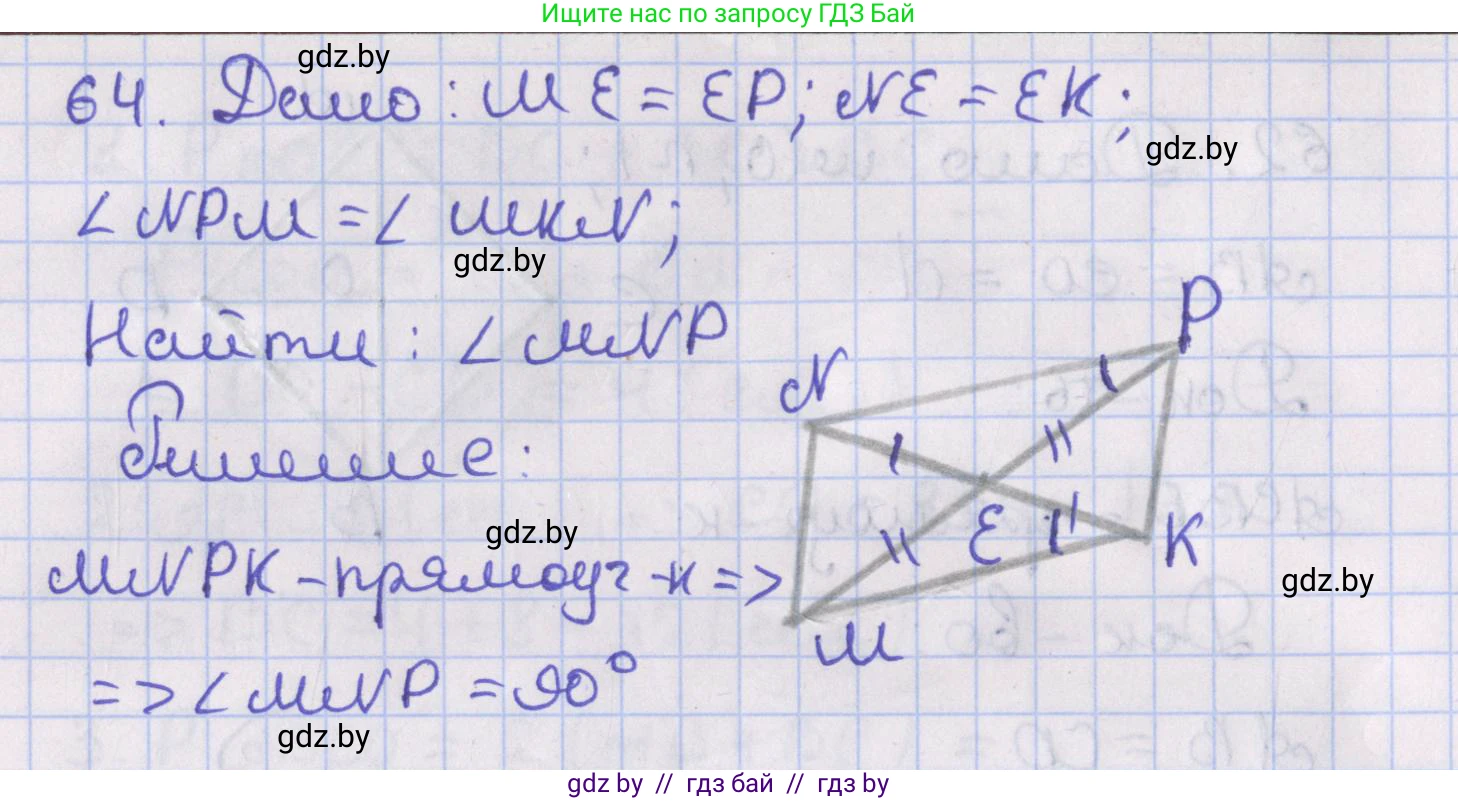 Ищите нас по запросу ГДЗ Бай
gdz.by
64. Дано: ME = EP; NE = EK;
gdz.by
∠NPM = ∠MKN;
gdz.by
Найти: ∠MNP
P
N
Решение:
gdz.by
E
K
MNPK - прямоуг-к =>
gdz.by
M
=> ∠MNP = 90°
gdz.by
gdz.by // гдз бай // гдз by